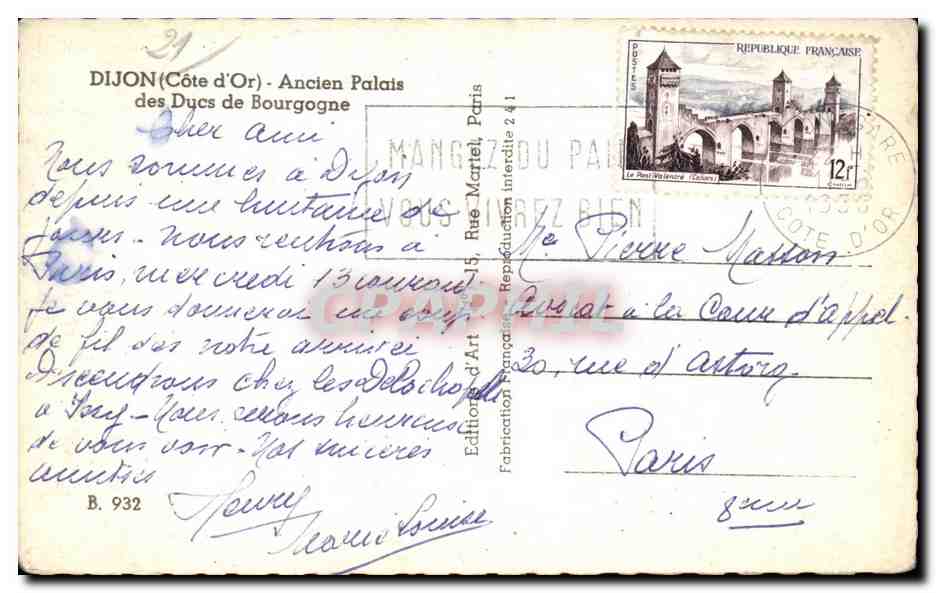 21
DIJON (Côte d'Or) - Ancien Palais
des Ducs de Bourgogne
Cher ami
Nous sommes à Dijon
depuis une huitaine de
jours - Nous rentrons à
Paris, mercredi 13 courant
je vous donnerai un coup
de fil dès notre arrivée
Descendrons chez les Delachapelle
à Issy - Nous serons heureux
de vous voir - Nos sincères
amitiés
Henry
Marie Louise
B. 932
Editions d'Art 15, Rue Martel, Paris
Fabrication Française Reproduction interdite 241
MANGEZ DU PAIN
VOUS VIVREZ BIEN
POSTES
REPUBLIQUE FRANÇAISE
Le Pont Valentré (Cahors)
12f
GARE
COTE D'OR
CPAPHIL
Me Pierre Masson
Avocat à la Cour d'appel
30, rue d'Astorg
Paris
8eme